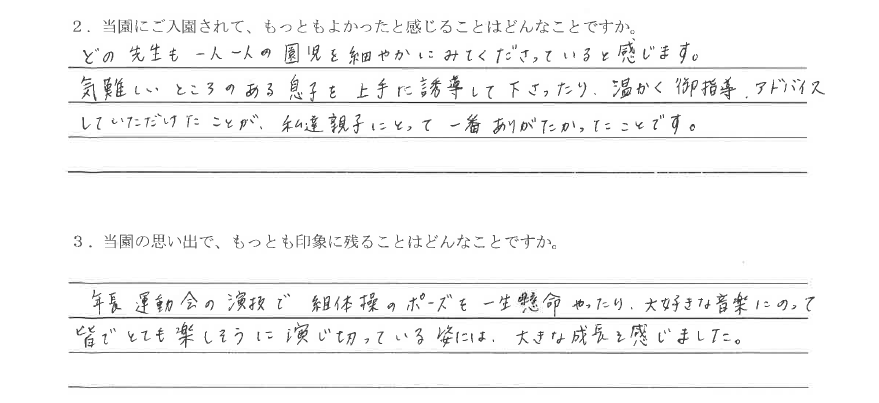 ２．当園にご入園されて、もっともよかったと感じることはどんなことですか。
どの先生も一人一人の園児を細やかにみてくださっていると感じます。
気難しいところのある息子を上手に誘導して下さったり、温かく御指導、アドバイス
していただけたことが、私達親子にとって一番ありがたかったことです。
３．当園の思い出で、もっとも印象に残ることはどんなことですか。
年長運動会の演技で組体操のポーズも一生懸命やったり、大好きな音楽にのって
皆でとても楽しそうに演じ切っている姿には、大きな成長を感じました。